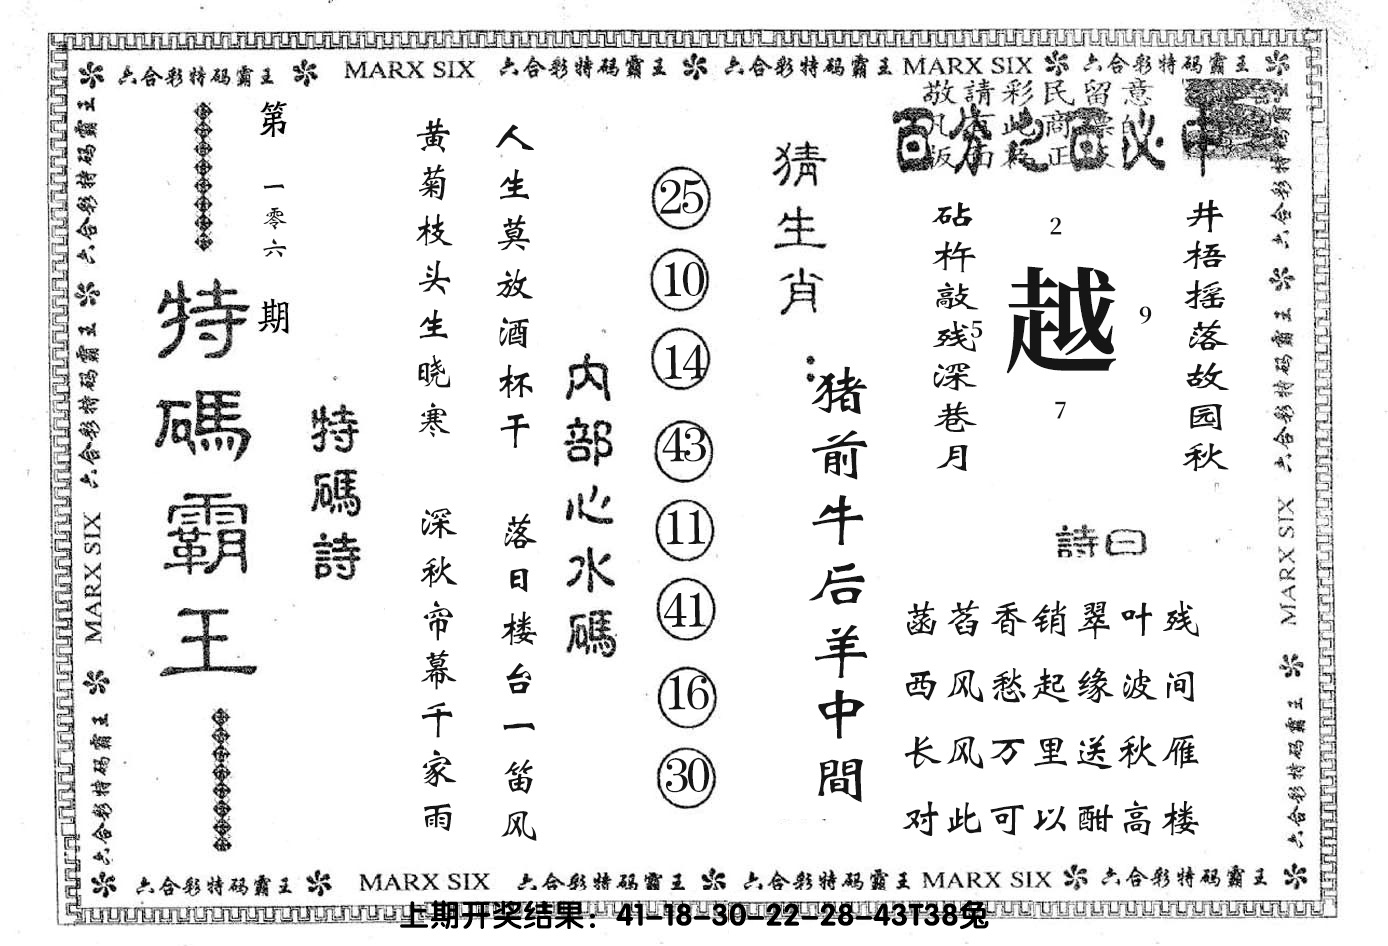 六合彩特码霸王 MARX SIX 六合彩特码霸王 六合彩特码霸王 MARX SIX 六合彩特码霸王
六合彩特码霸王
六合彩特码霸王
MARX SIX
六合彩特码霸王
六合彩特码霸王
六合彩特码霸王
MARX SIX
六合彩特码霸王
敬請彩民留意
百分之百必中
井梧摇落故园秋
2
越
5
9
7
砧杵敲残深巷月
詩曰
菡萏香销翠叶残
西风愁起缘波间
长风万里送秋雁
对此可以酣高楼
猜生肖:
猪前牛后羊中間
25
10
14
43
11
41
16
30
内部心水碼
人生莫放酒杯干 落日楼台一笛风
黄菊枝头生晓寒 深秋帘幕千家雨
特碼詩
第一零六期
特碼霸王
六合彩特码霸王 MARX SIX 六合彩特码霸王 六合彩特码霸王 MARX SIX 六合彩特码霸王
上期开奖结果：41-18-30-22-28-43T38兔